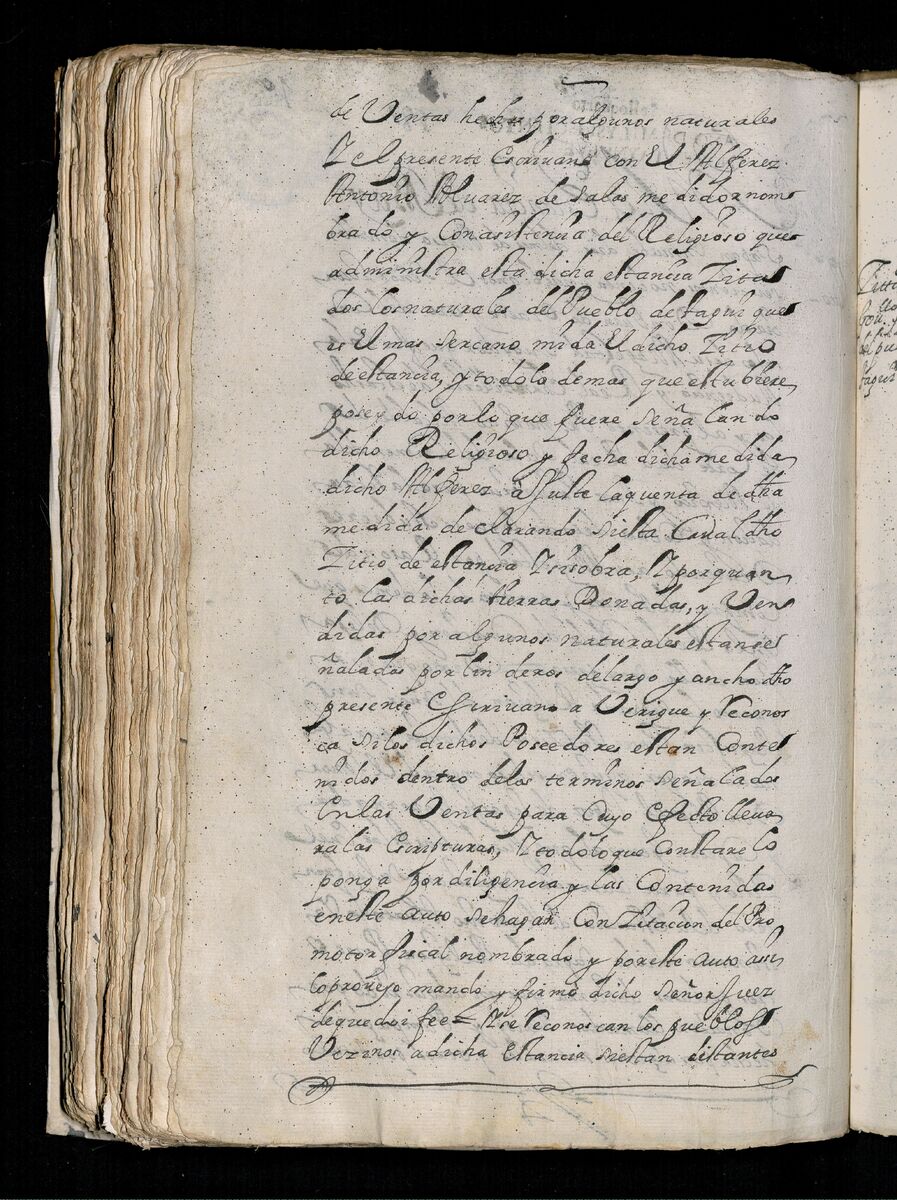 de Ventas hechas por algunos naturales
Y el presente Escriuano con El Alferez
Antonio Aluarez de Salas medidor nom
brado y Con asistencia del Religioso que
administra esta dicha estancia Zita
dos los naturales del Pueblo de taguí que
es El mas sercano mida El dicho Zitio
de estancia, y todo lo demas que estubiere
poseydo por lo que fuere Señalando
dicho Religioso y fecha dicha medida
dicho Alferez aJuste la quenta de dha
medida declarando si esta Caual dho
Zitio de estancia Y si sobra, Y por quan
to las dichas tierras Donadas, y Ven
didas por algunos naturales estan se
ñaladas por linderos de largo y ancho dho
presente Escriuano aVerigue y reconos
ca si los dichos Poseedores estan Conte
nidos dentro de los terminos Señalados
En las Ventas para Cuyo Efecto lleua
ra las Escripturas, Y todo lo que Constare lo
ponga por diligencia y las Contenidas
en este auto se hagan Con Zitacion del Pro
motor fiscal nombrado y por este auto assi
lo proveyo mando y firmo dicho Señor Juez
de que doi fee = Y se reconoscan los pueblos
Vezinos a dicha Estancia si estan distantes
Zitio